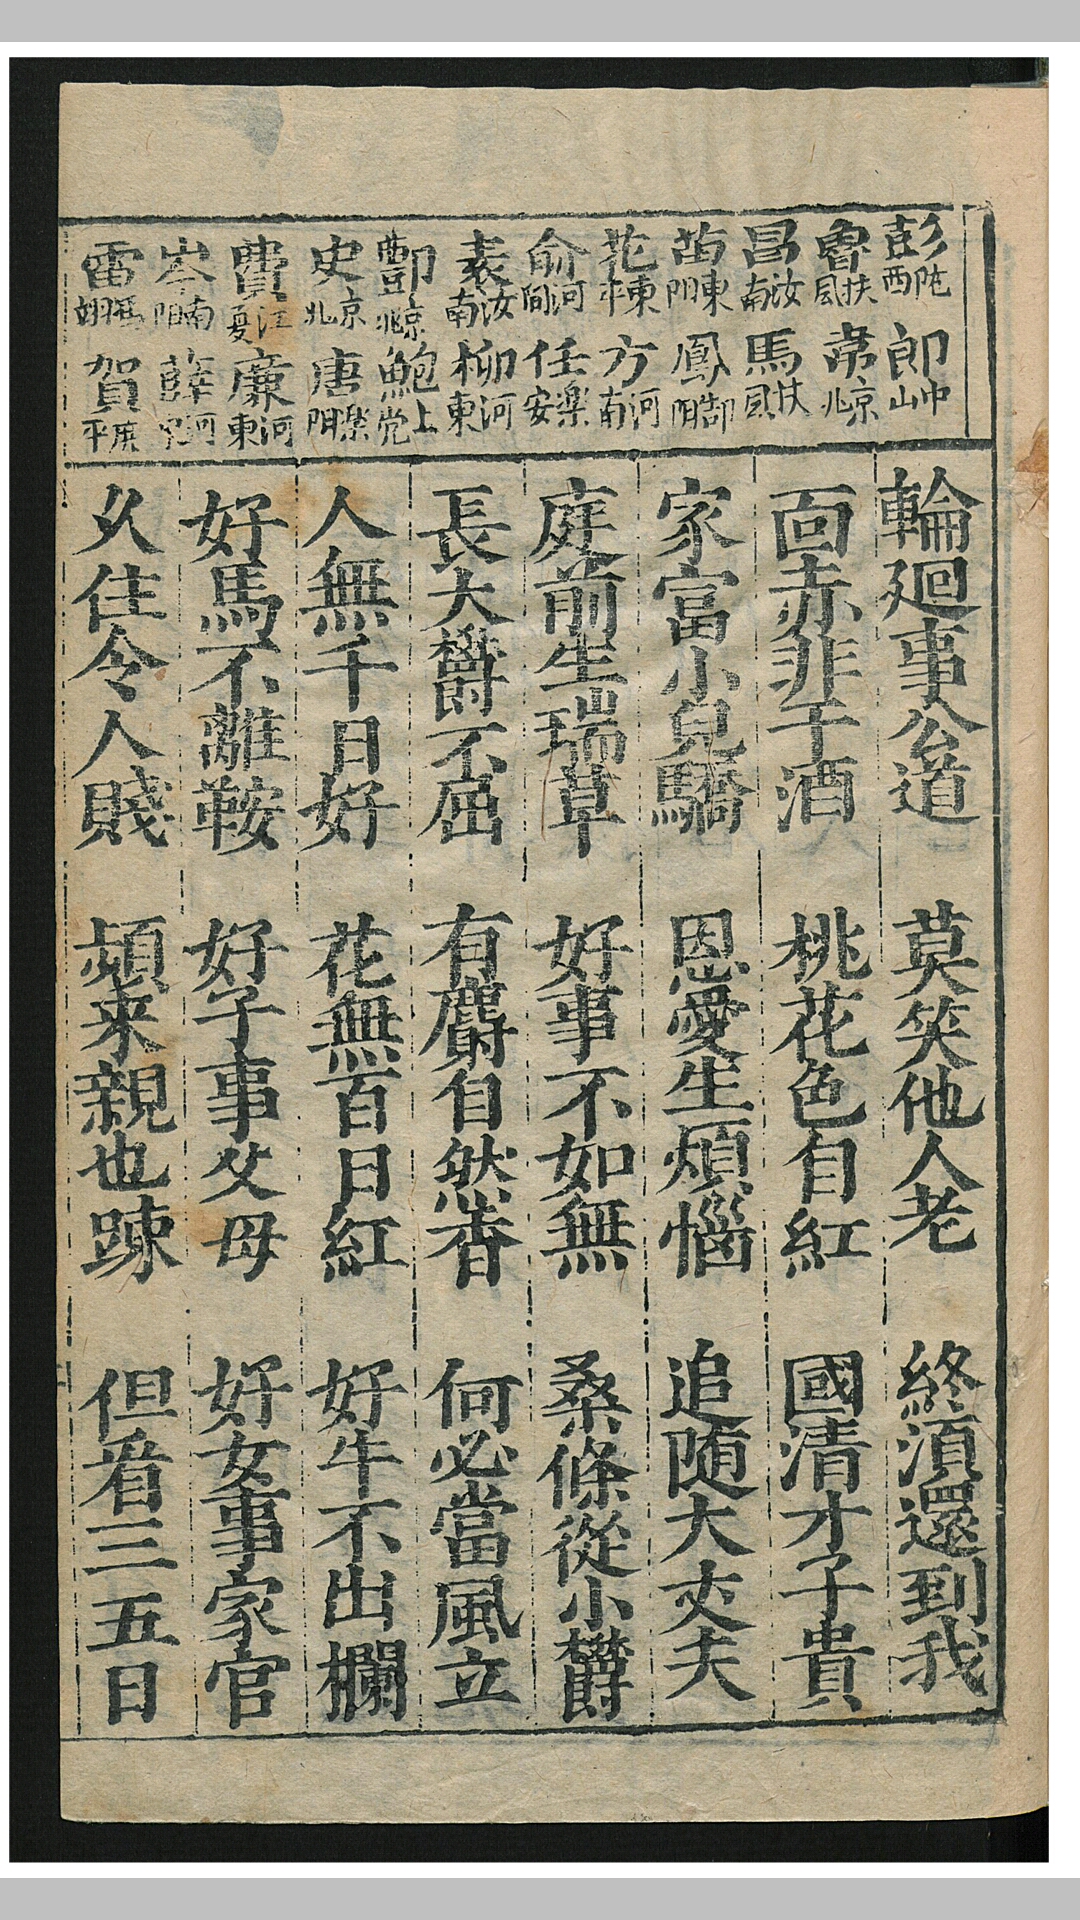 彭 西 郎 中山
魯 扶風 韋 京兆
昌 汝南 馬 扶風
苗 東阳 鳳 郃阳
花 東平 方 河南
俞 河間 任 樂安
袁 汝南 柳 河東
酆 京兆 鮑 上党
史 京 唐 阳
費 江夏 廉 河東
岑 南阳 薛 河
雷 馮翊 賀 廣平
輪廻事公道 莫笑他人老 終須還到我
靣赤非干酒 桃花色自紅 國清才子貴
家富小兒驕 恩愛生煩惱 追随大丈夫
庭前生瑞草 好事不如無 桑條從小欝
長大欝不屈 有麝自然香 何必當風立
人無千日好 花無百日紅 好牛不出欄
好馬不離鞍 好子事父母 好女事家官
久住令人賤 頻来親也踈 但看三五日